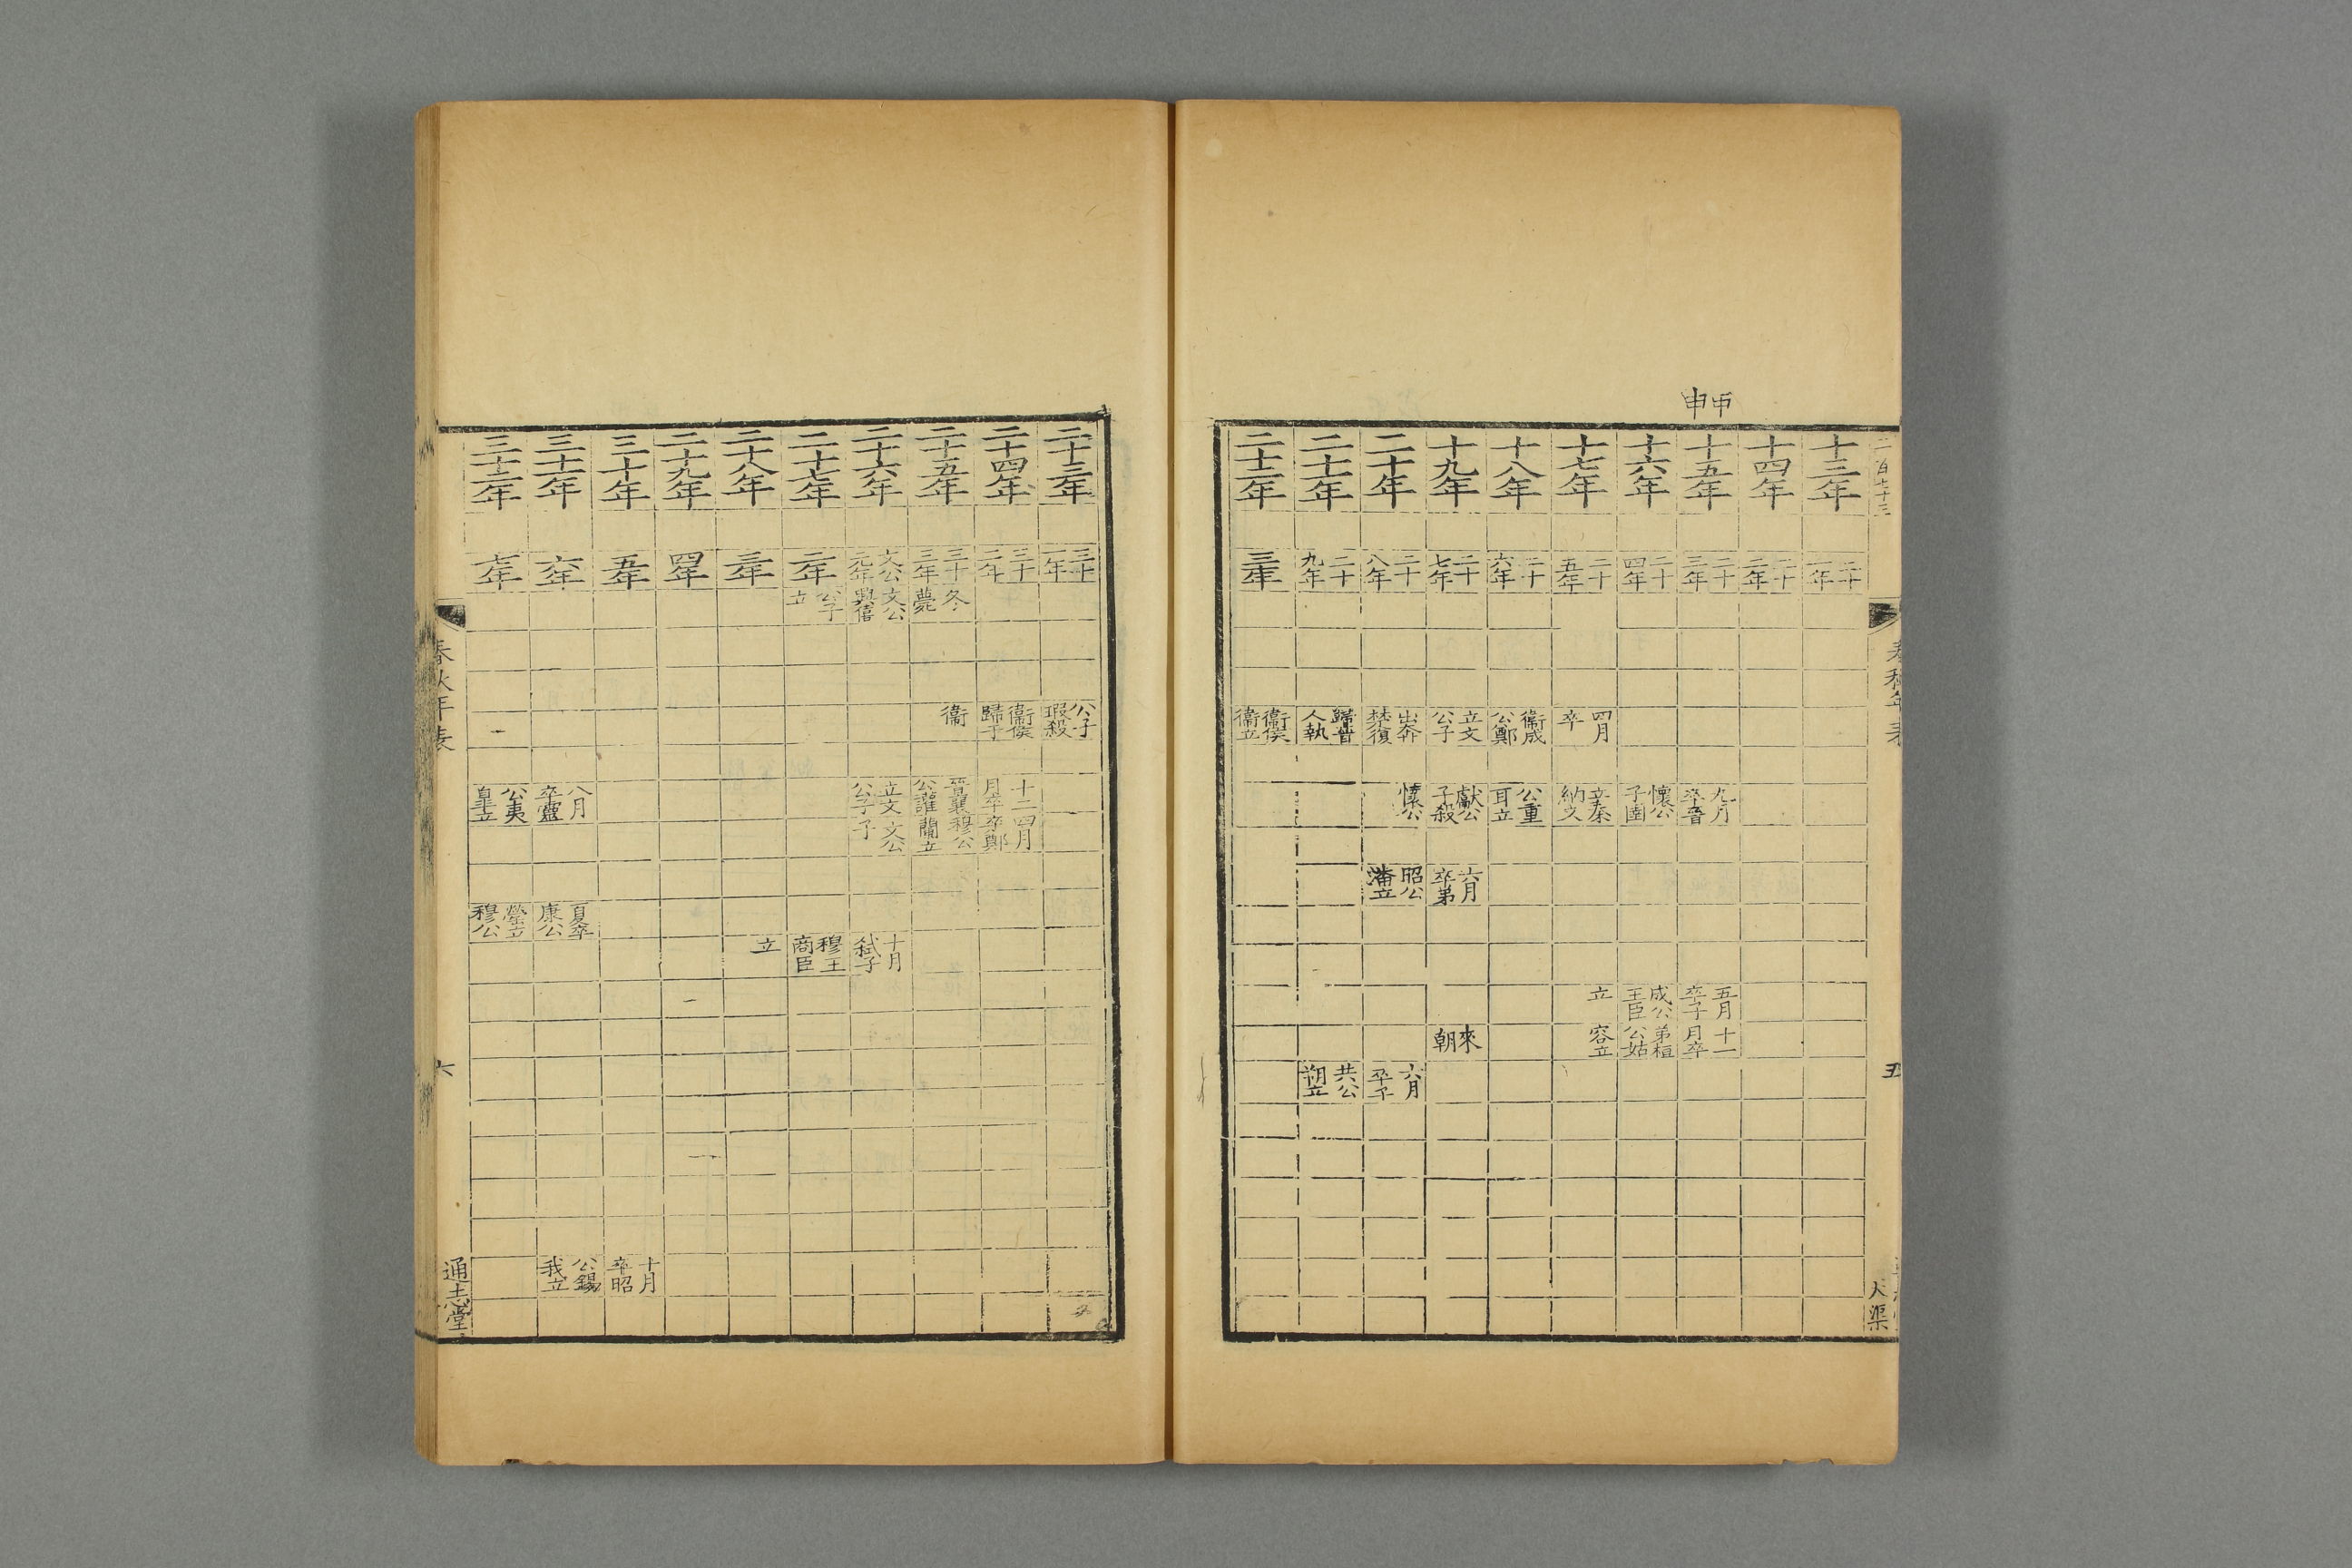 二百七十三
春秋年表
五
大渠
申
十三年
二十一年
十四年
二十二年
十五年
二十三年
九月
卒晉
五月
卒子
十一
月卒
十六年
二十四年
懷公
子圉
成公
王臣
弟桓
公姑
十七年
二十五年
四月
卒
立秦
納文
立
容立
十八年
二十六年
衞成
公鄭
公重
耳立
十九年
二十七年
立文
公子
獻公
子殺
六月
卒弟
來
朝
二十年
二十八年
出奔
楚復
懷公
昭公
潘立
六月
卒子
二十一年
二十九年
歸晉
人執
共公
朔立
二十二年
三十年
衞侯
衞立
二十三年
三十一年
公子
瑕殺
二十四年
三十二年
衞侯
歸于
十二
月卒
四月
卒鄭
二十五年
三十三年
冬
薨
衞
晉襄
公讙
穆公
蘭立
二十六年
文公
元年
文公
興僖
立文
公子
文公
子
十月
弑子
二十七年
二年
公子
立
穆王
商臣
二十八年
三年
立
二十九年
四年
三十年
五年
十月
卒昭
三十一年
六年
八月
卒靈
夏卒
康公
公錫
我立
三十二年
七年
公夷
皋立
罃立
穆公
春秋年表
六
通志堂